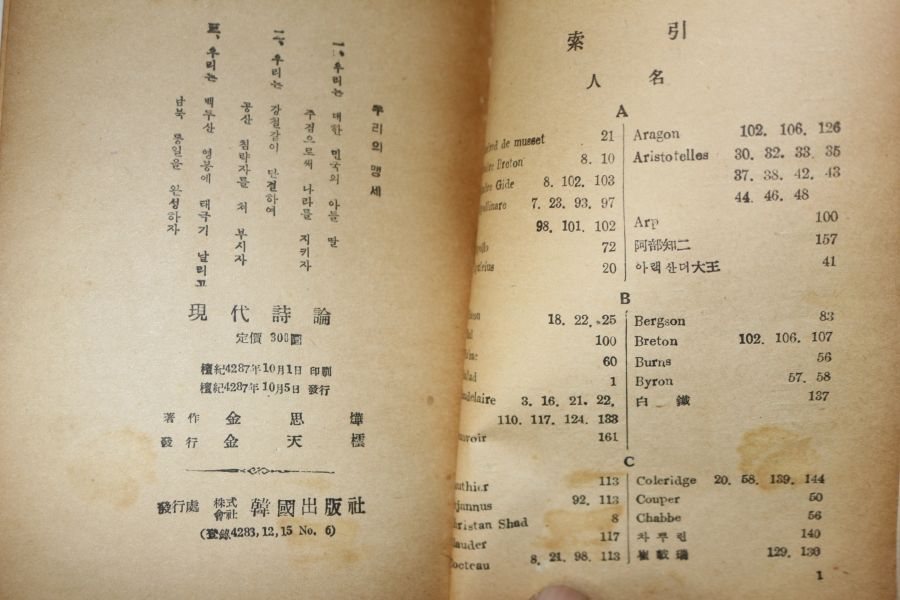 우리의 맹세
一、우리는 대한 민국의 아들 딸
주검으로써 나라를 지키자
二、우리는 강철같이 단결하여
공산 침략자를 쳐 부시자
三、우리는 백두산 영봉에 태극기 날리고
남북 통일을 완성하자
現代詩論
定價 300圜
檀紀4287年10月1日 印刷
檀紀4287年10月5日 發行
著作 金思燁
發行 金天
發行處 株式會社 韓國出版社
(登錄4283,12,15 No. 6)
索引
人名
A
de musset 21
Breton 8. 10
Gide 8. 102. 103
7. 23. 93. 97
98. 101. 102
72
20
Aragon 102. 106. 126
Aristotelles 30. 32. 33. 35
37. 38. 42. 43
44. 46. 48
Arp 100
阿部知二 157
아랙산더大王 41
B
18. 22. 25
100
60
1
3. 16. 21. 22.
110. 117. 124. 133
161
Bergson 83
Breton 102. 106. 107
Burns 56
Byron 57. 58
白鐵 137
C
113
92. 113
Shad 8
117
8. 21. 98. 113
Coleridge 20. 58. 139. 144
Couper 50
Chabbe 56
차푸린 140
崔載瑞 129. 130
1